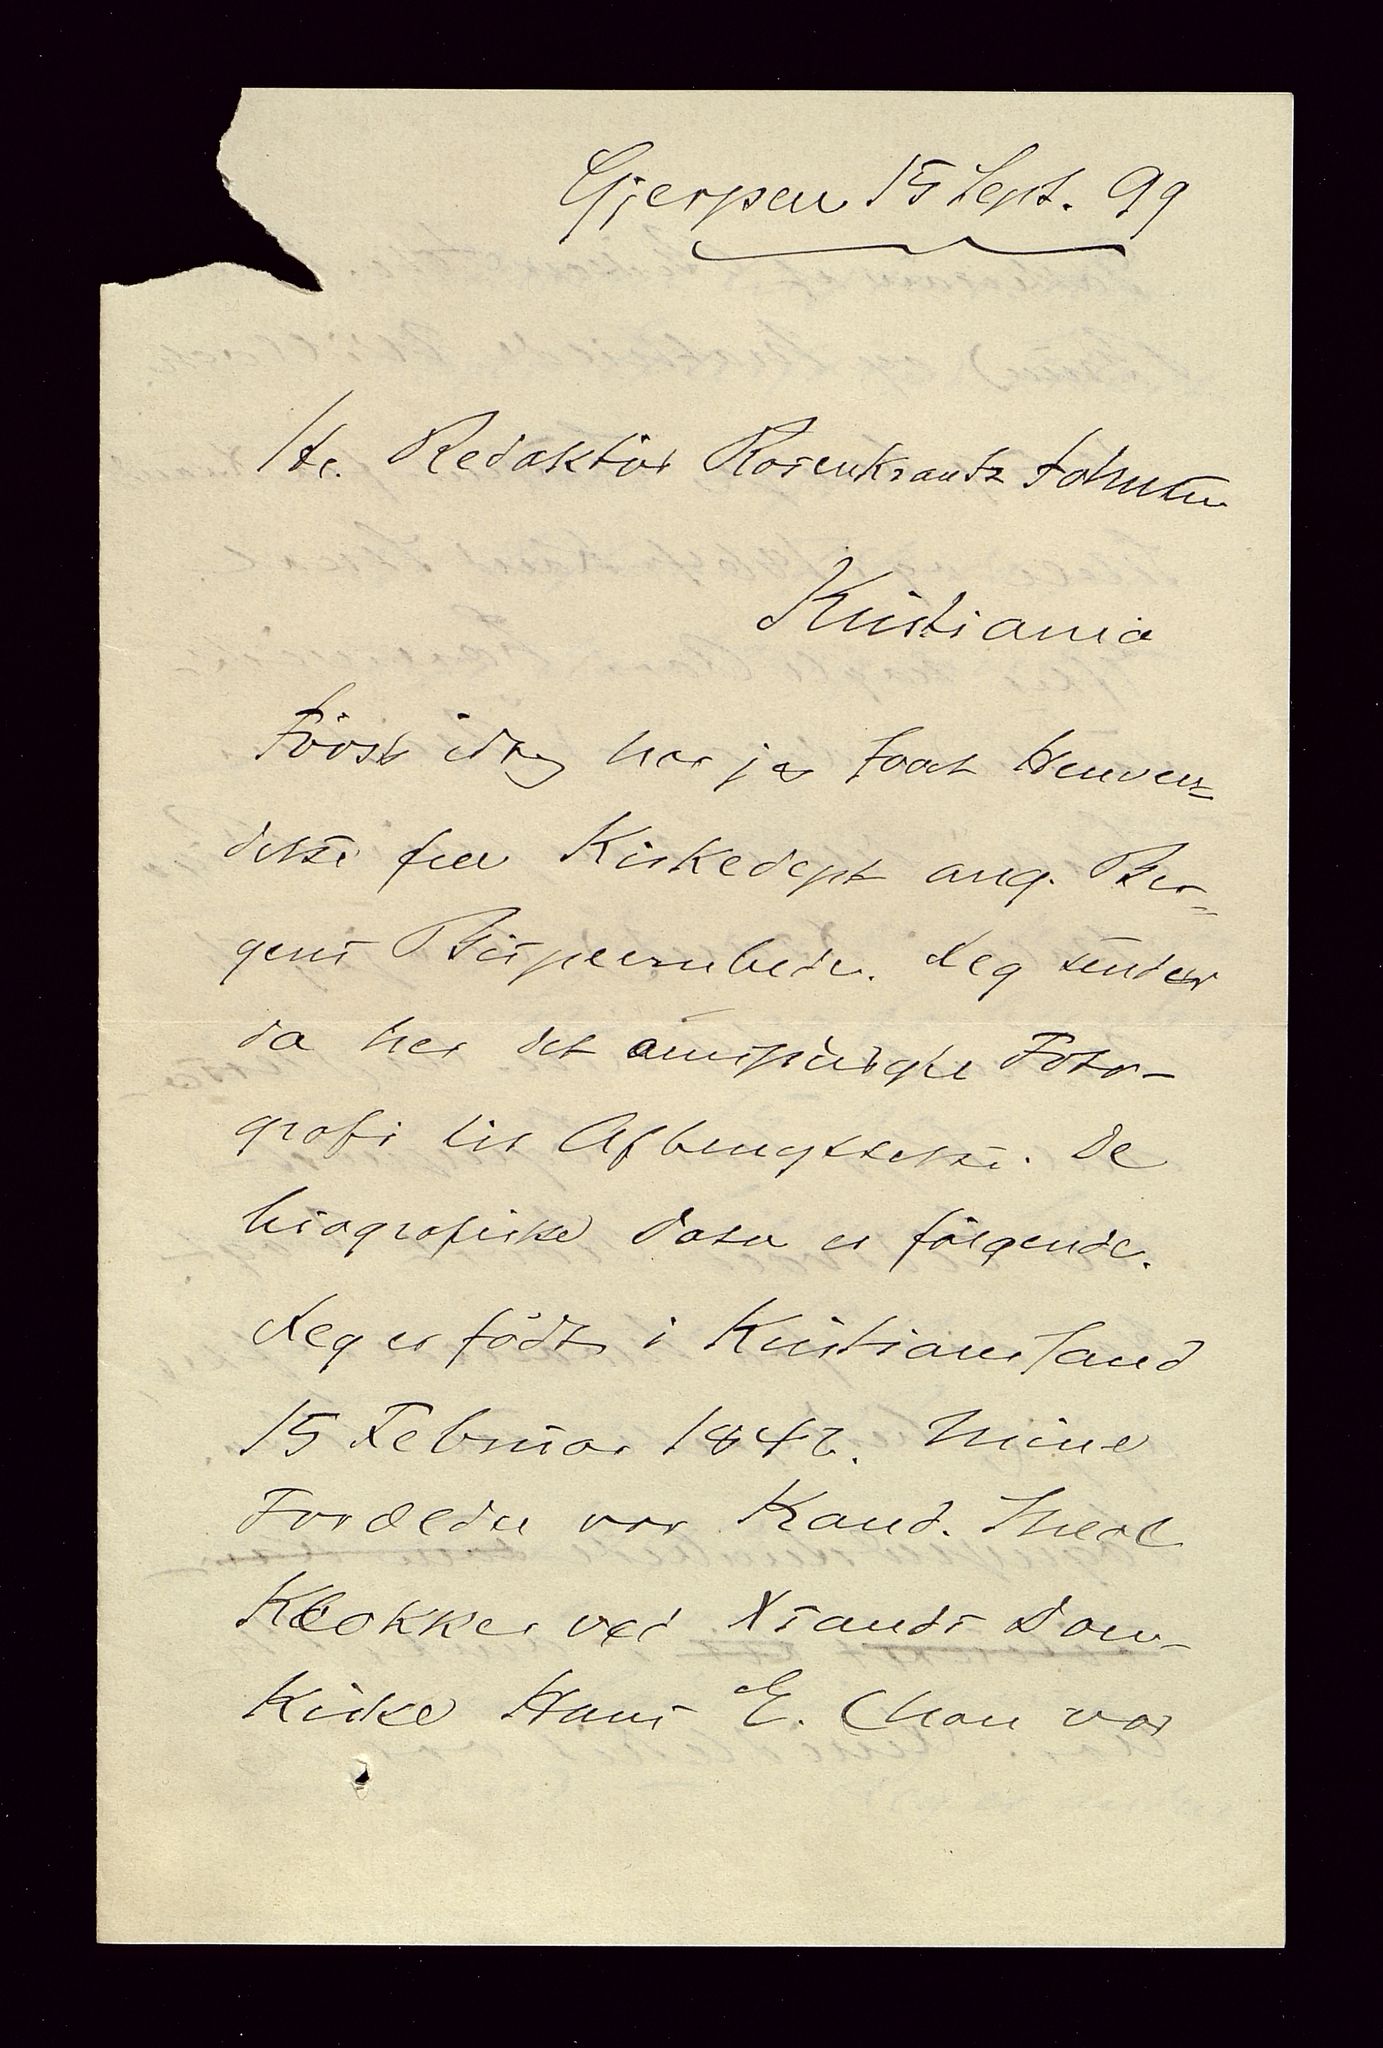 Gjerpen 15 Sept. 99
Hr. Redaktör Rosenkrantz Johnsen
Kristiania
Först idag har jeg faaet Henven-
delse fra Kirkedept ang. Ber-
gens Bispeembede. Jeg sender
da her det omspurgte Foto-
grafi til Afbenyttelse. De
biografiske Data er fölgende.
Jeg er födt i Kristianssand
15 Februar 1842. Mine
Forældre var Kand. Theol
Klokker ved Xsands Dom-
kirke Hans E. (han var